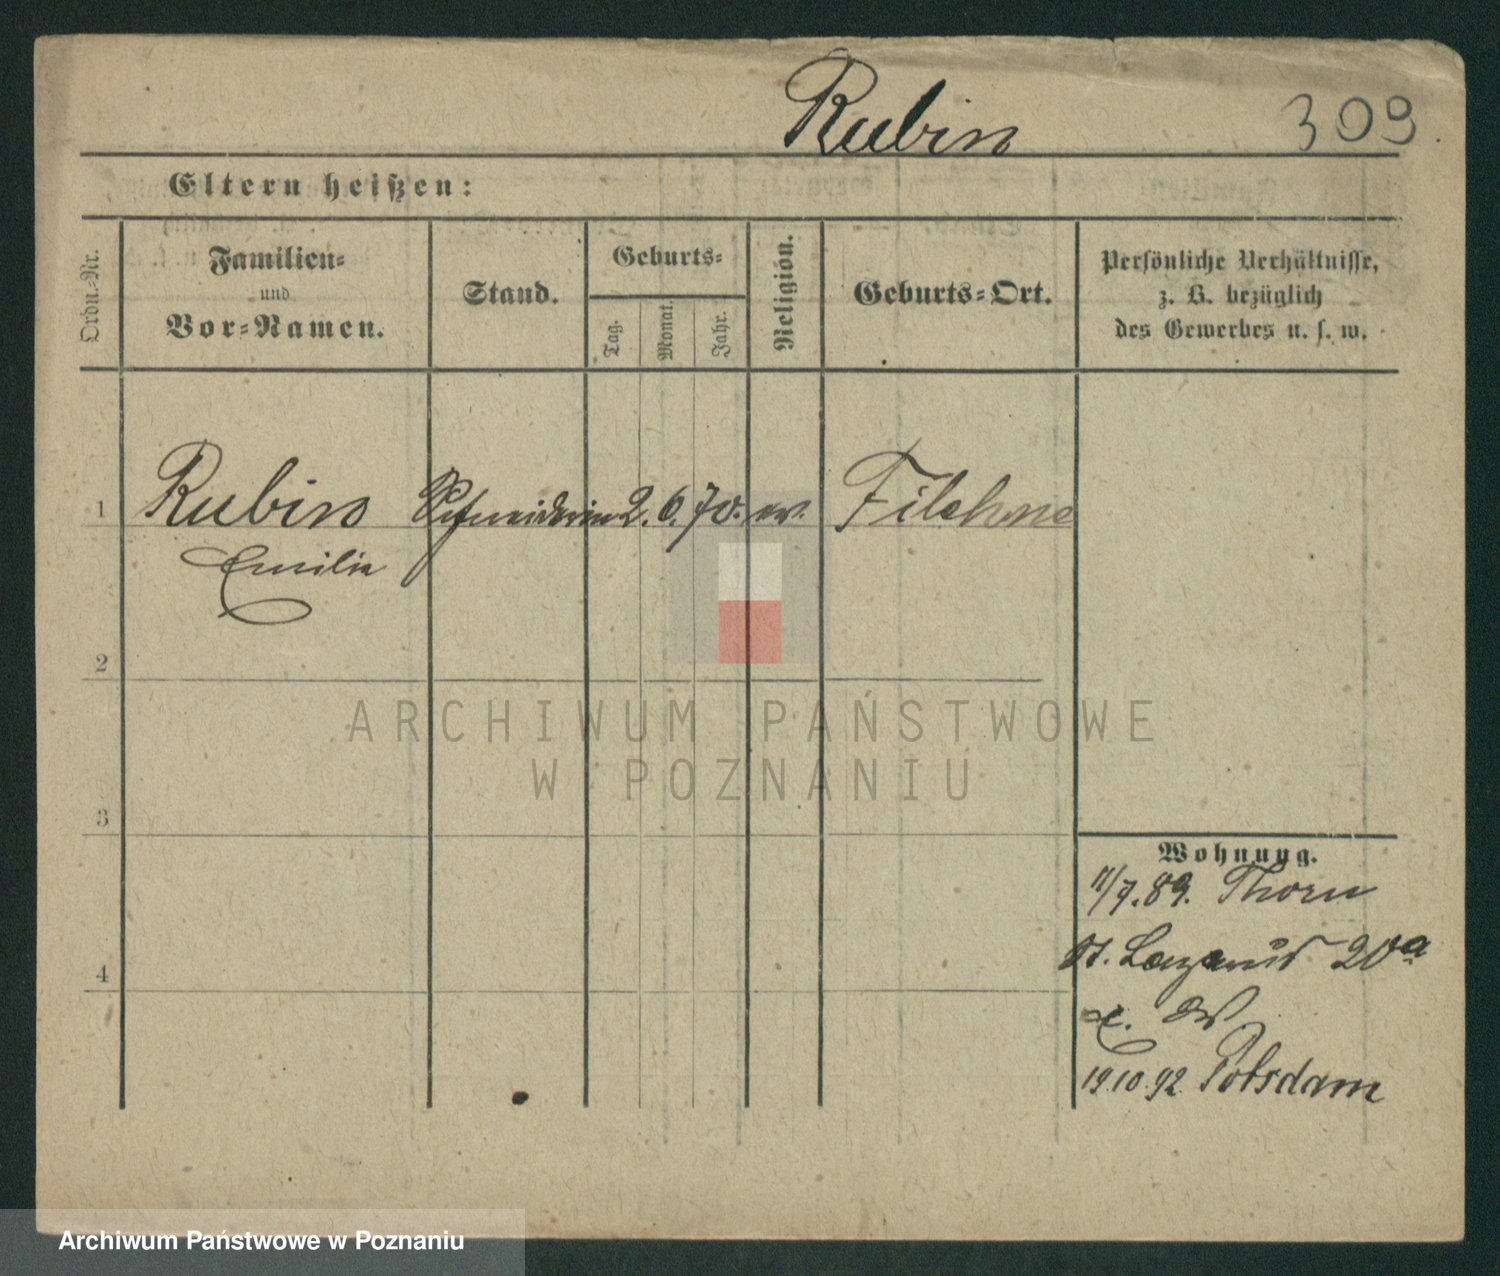 Rubin
309
Eltern heißen:
Ordn.-Nr.
Familien-
und
Vor-Namen.
Stand.
Geburts-
Tag.
Monat.
Jahr.
Religion.
Geburts-Ort.
Persönliche Verhältnisse,
z. B. bezüglich
des Gewerbes u. s. w.
1 Rubin Schneiderin 2. 6. 70. ev. Filehne
Emilie
2
3
4
Wohnung.
11/7.89. Thorn
St. Lazarus 20a
19.10.92 Potsdam
ARCHIWUM PAŃSTWOWE
W POZNANIU
Archiwum Państwowe w Poznaniu